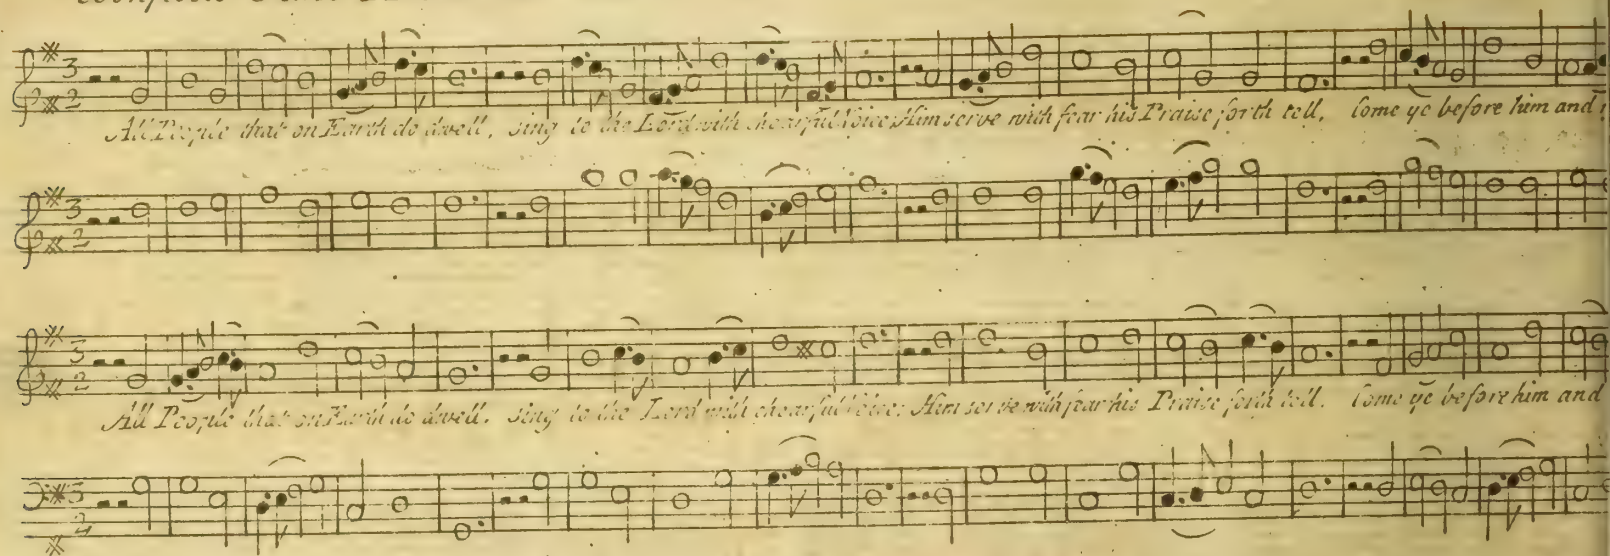 3
2
All People that on Earth do dwell, sing to the Lord with chearful Voice, Him serve with fear his Praise forth tell, Come ye before him and
3
2
3
2
All People that on Earth do dwell, sing to the Lord with chearful Voice; Him serve with fear his Praise forth tell. Come ye before him and
3
2